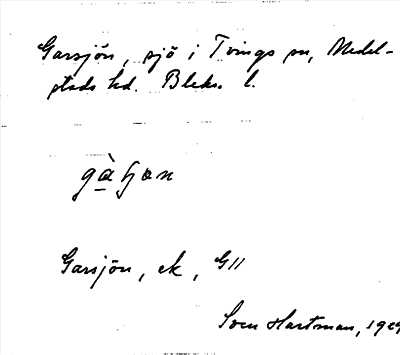 Garsjön, sjö i Tvings sn, Medel-
stads hd. Blek. l.
gàɧɷn
Garsjön, ek, G11
Sven Hartman, 1929